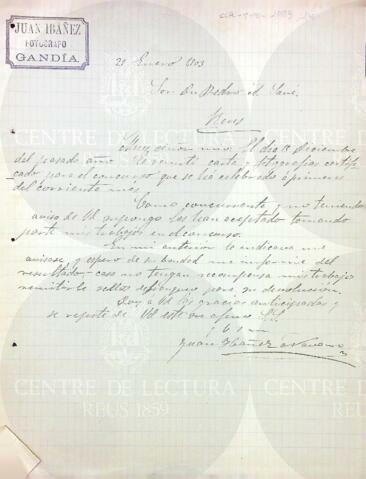 JUAN IBÁÑEZ
FOTÓGRAFO
GANDÍA.
21 Enero 1903
Sor. Dn. Pedro
Reus
Muy señor mio: El dia 18 Diciembre
del pasado año le remití carta y fotografias certifi
cado para el concurso que se ha celebrado á primeros
del corriente mes.
Como concurrente, y no teniendo
aviso de Vd. supongo las han aceptado tomando
parte mis trabajos en el concurso.
En mi anterior le indicaba me
avisase, y espero de su bondad me informe del
resultado, caso no tengan recompensa mis trabajos
remitirle sellos para su devolucion.
Doy a Vd. las gracias anticipadas y
se repite de Vd. este su afmo. S.S.
Juan Ibáñez
CENTRE DE LECTURA
REUS 1859
CENTRE DE LECTURA
REUS 1859